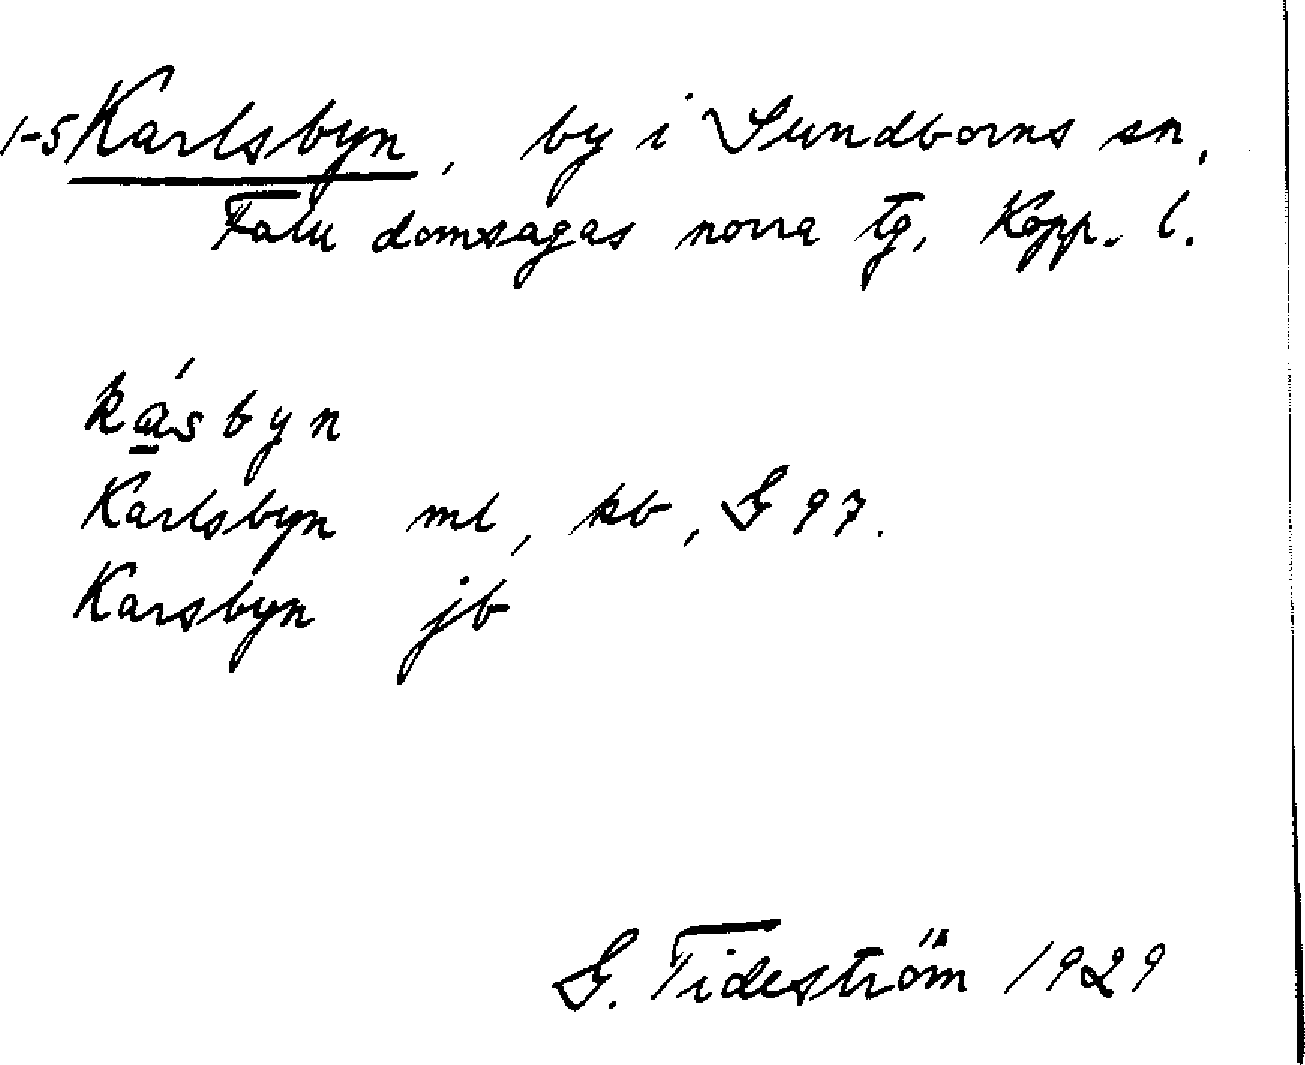 1-5 Karlsbyn, by i Sundborns sn,
Falu domsagas norra tg, Kopp. l.
ká̲sbyn
Karlsbyn ml, kb, G 97.
Karsbyn jb
G. Tideström 1929